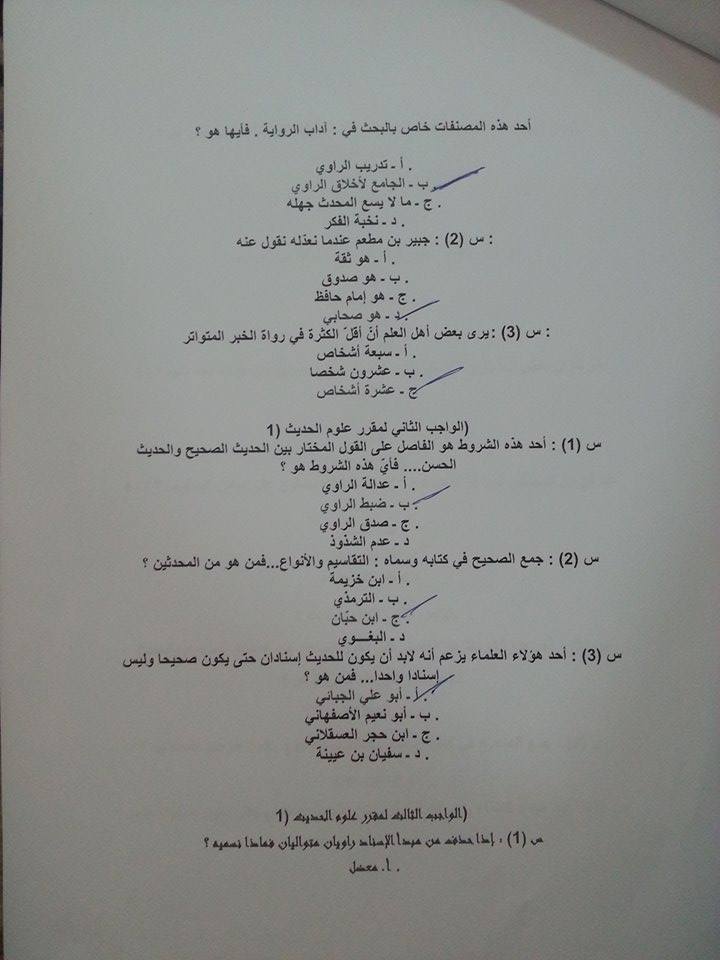 أحد هذه المصنفات خاص بالبحث في : آداب الرواية . فأيها هو ؟
. أ ـ تدريب الراوي
. ب ـ الجامع لأخلاق الراوي
. ج ـ ما لا يسع المحدث جهله
. د ـ نخبة الفكر
: س (2) : جبير بن مطعم عندما نعدّله نقول عنه
. أ ـ هو ثقة
. ب ـ هو صدوق
. ج ـ هو إمام حافظ
. د ـ هو صحابي
: س (3) :يرى بعض أهل العلم أنّ أقلّ الكثرة في رواة الخبر المتواتر
. أ ـ سبعة أشخاص
. ب ـ عشرون شخصا
ج ـ عشرة أشخاص
(الواجب الثاني لمقرر علوم الحديث (1
س (1) : أحد هذه الشروط هو الفاصل على القول المختار بين الحديث الصحيح والحديث
الحسن.... فأيّ هذه الشروط هو ؟
. أ ـ عدالة الراوي
. ب ـ ضبط الراوي
. ج ـ صدق الراوي
د ـ عدم الشذوذ
س (2) : جمع الصحيح في كتابه وسماه : التقاسيم والأنواع...فمن هو من المحدثين ؟
. أ ـ ابن خزيمة
. ب ـ الترمذي
. ج ـ ابن حبّان
د ـ البغـــوي
س (3) : أحد هؤلاء العلماء يزعم أنه لابد أن يكون للحديث إسنادان حتى يكون صحيحا وليس
إسنادا واحدا... فمن هو ؟
. أ ـ أبو علي الجبائي
. ب ـ أبو نعيم الأصفهاني
. ج ـ ابن حجر العسقلاني
. د ـ سفيان بن عيينة
(الواجب الثالث لمقرر علوم الحديث (1
س (1) : إذا حذف من مبدأ الإسناد راويان متواليان فماذا نسميه ؟
. أ. معضل